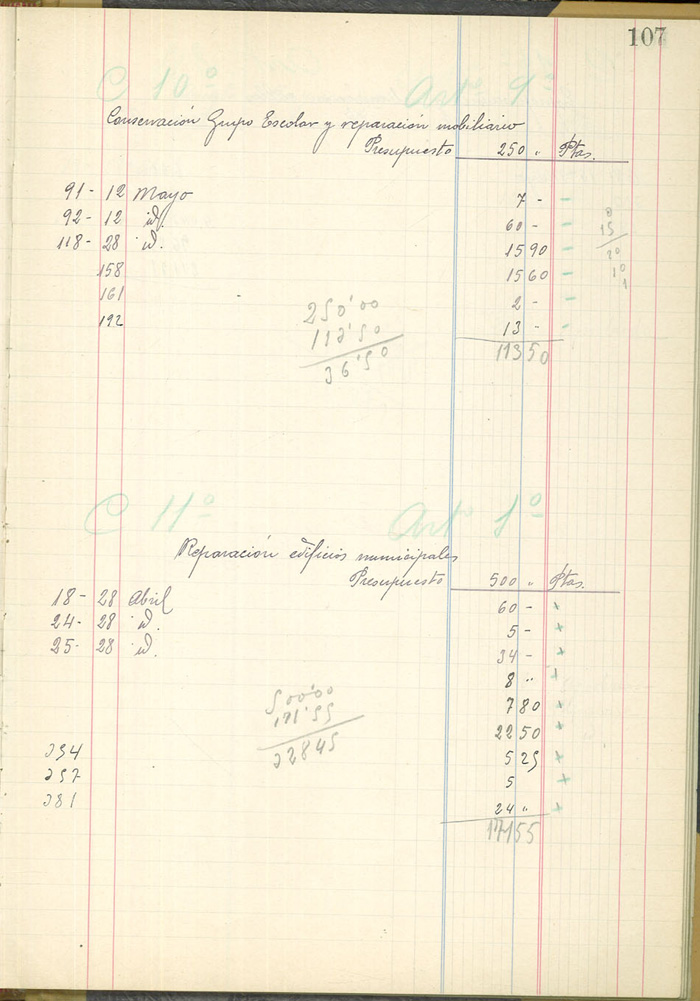 107
C 10º Artº 9º
Conservación Grupo Escolar y reparación mobiliario
Presupuesto 250 " Ptas.
91 - 12 Mayo 7 - -
92 - 12 id. 60 - -
118 - 28 id. 15 90 -
158 15 60 -
161 2 - -
192 13 - -
113 50
250'00
113'50
36'50
0
15
20
10
1
C 11º Artº 1º
Reparación edificios municipales
Presupuesto 500 " Ptas.
18 - 28 Abril 60 - +
24 - 28 id. 5 - +
25 - 28 id. 34 - +
8 " +
7 80 +
22 50 +
5 25 +
5 +
24 " +
171 55
500'00
171'55
32845
234
257
281